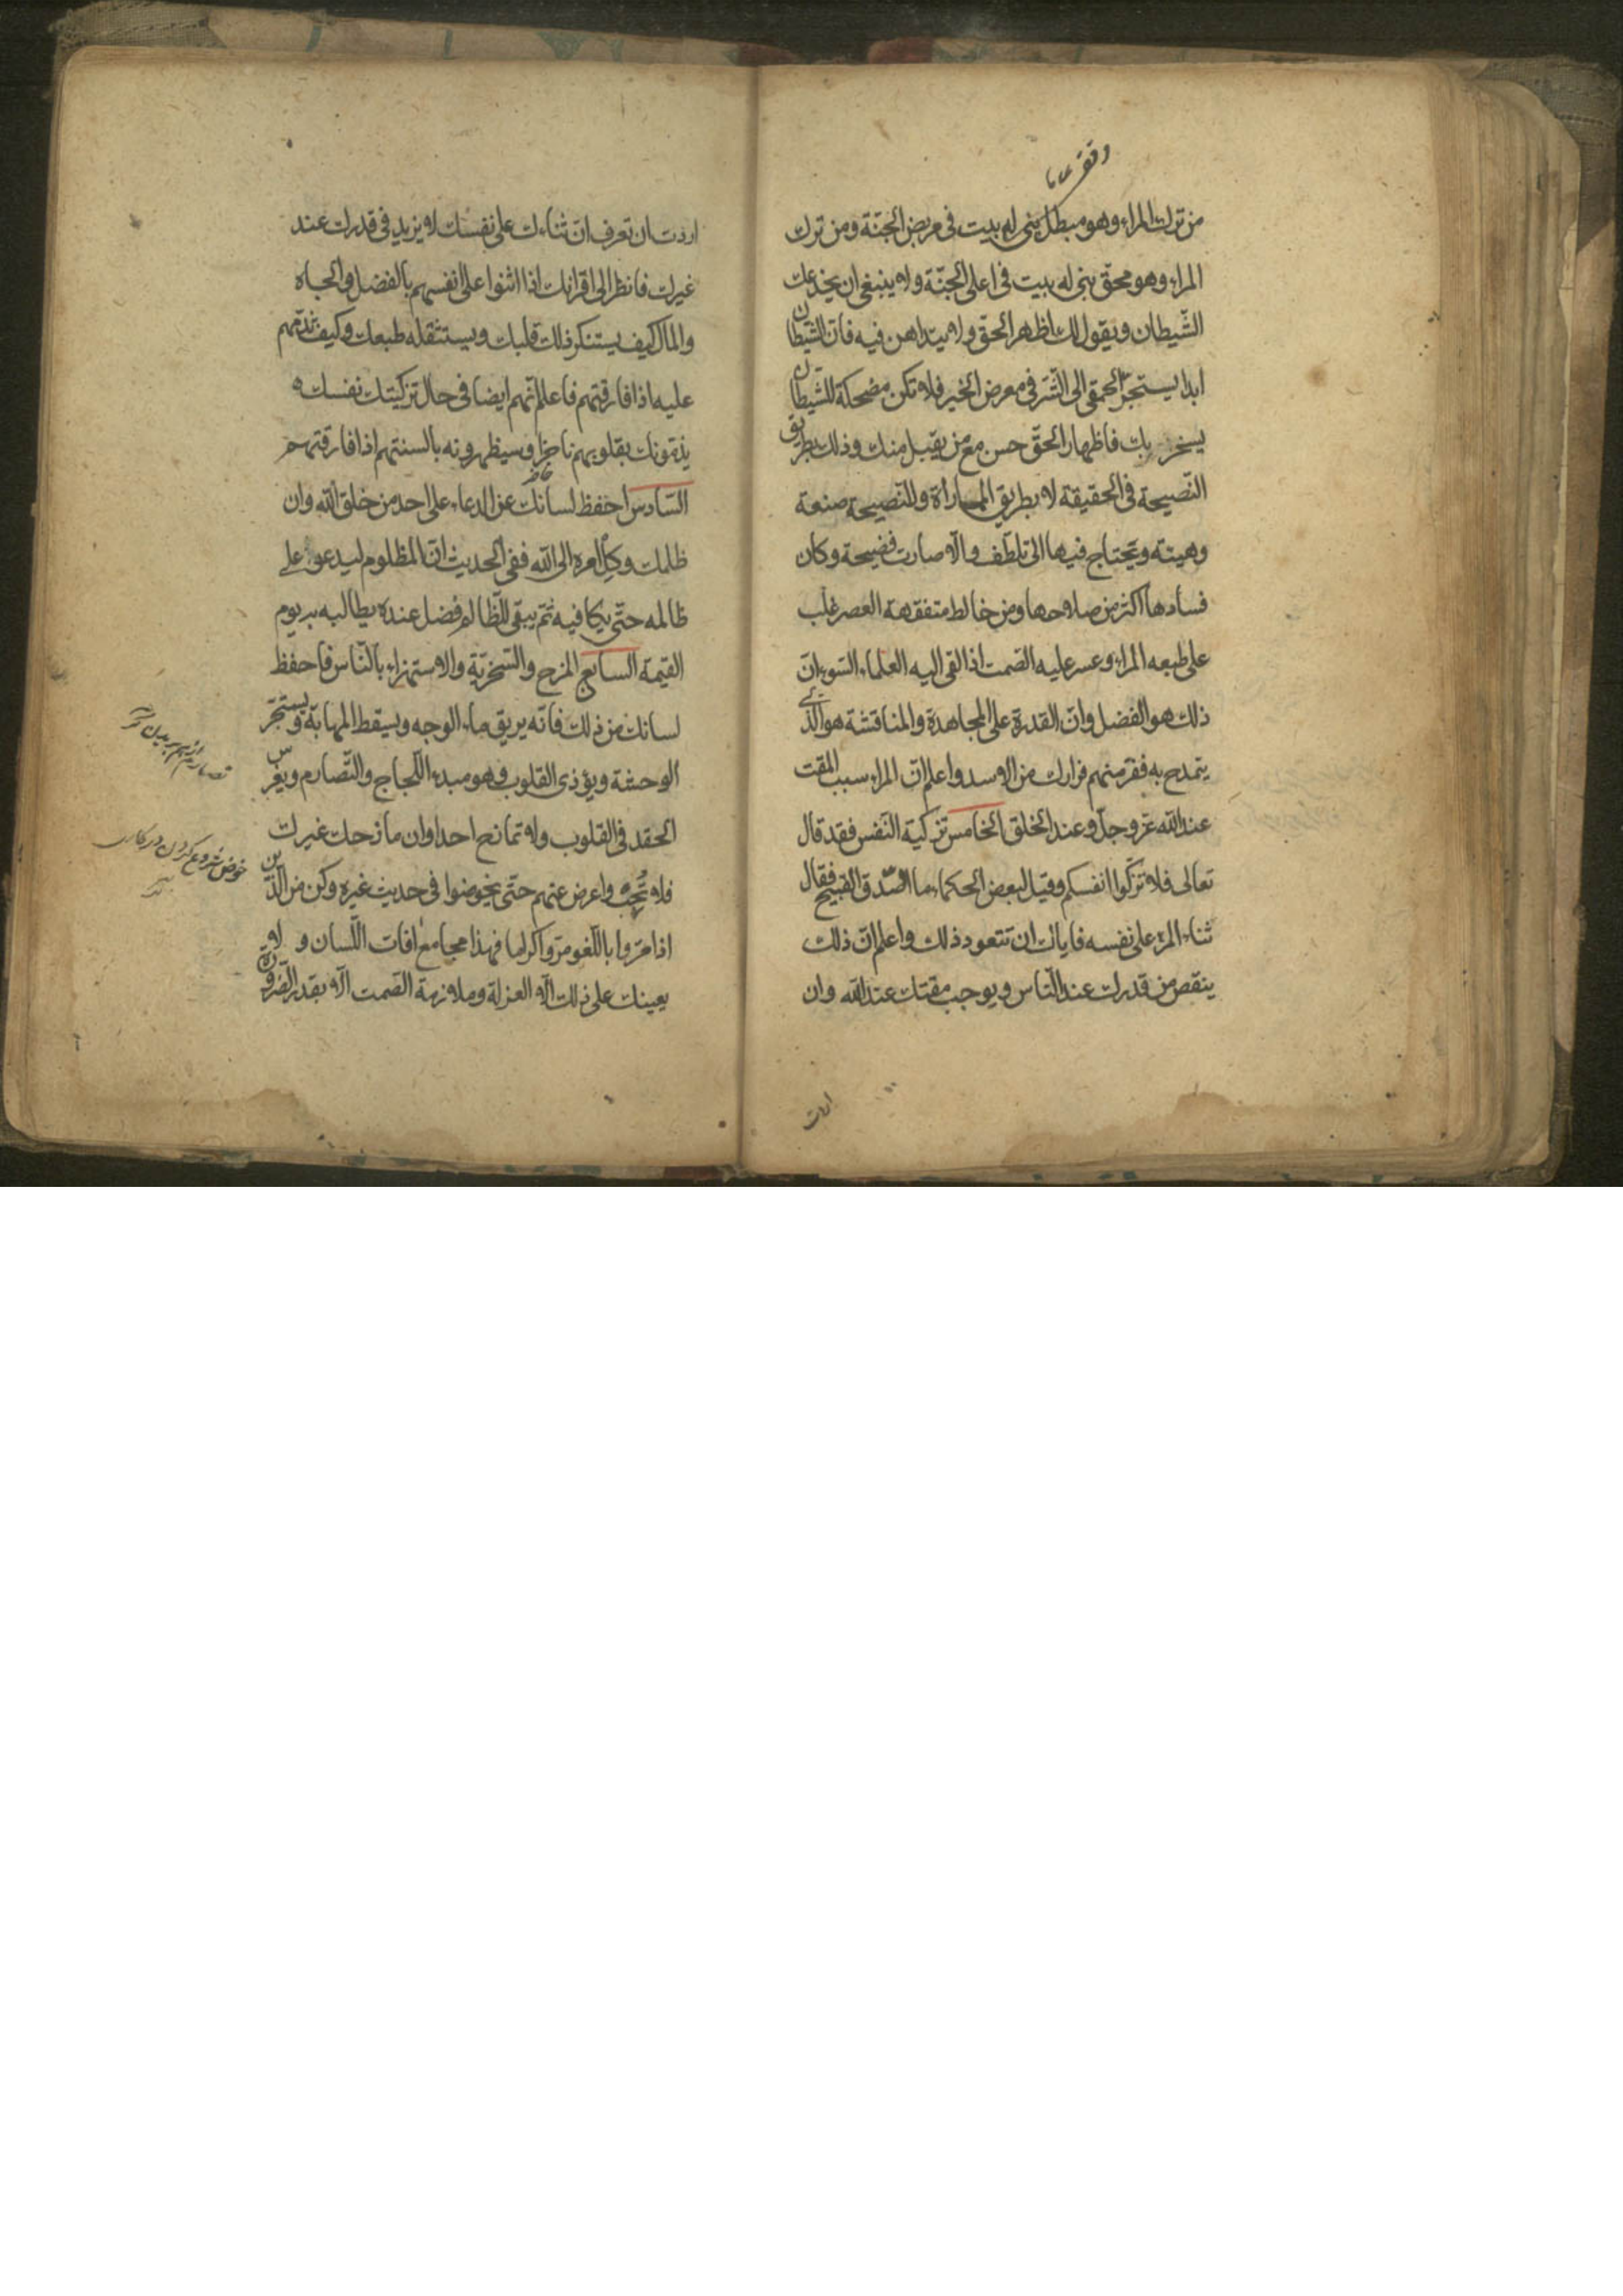 وقف عام
من ترك المراء وهو مبطل بنى له بيت فى ربض الجنّة ومن ترك
المراء وهو محقّ بنى له بيت فى اعلى الجنّة ولا ينبغى ان يخدعك
الشّيطان ويقول لك اظهر الحق ولا تداهن فيه فانّ الشّيطان
ابدا يستجرّ الحمقى الى الشّر فى معرض الخير فلا تكن مضحكة للشّيطان
يسخر بك فاظهار الحقّ حسن مع من يقبل منك وذلك بطريق
النّصيحة فى الحقيقة لا بطريق المماراة وللنّصيحة صنعة
وهيئة ويحتاج فيها الى تلطّف والّا صارت فضيحة وكان
فسادها اكثر من صلاحها ومن خالط متفقهة العصر غلب
على طبعه المراء وعسر عليه الصّمت اذا القى اليه العلماء السّوء انّ
ذلك هو الفضل وانّ القدرة على المجاهدة والمناقشة هو الّذى
يتمدح به ففر منهم فرارك من الاسد واعلم انّ المراء سبب المقت
عند الله عزّ وجلّ وعند الخلق الخامس تزكية النّفس فقد قال
تعالى فلا تزكّوا انفسكم وقيل لبعض الحكماء ما الصّدق القبيح فقال
ثناء المرء على نفسه فاياك ان تتعود ذلك واعلم انّ ذلك
ينقص من قدرك عند النّاس ويوجب مقتك عند الله وان
اردت
اردت ان تعرف انّ ثناءك على نفسك لا يزيد فى قدرك عند
غيرك فانظر الى اقرانك اذا اثنوا على انفسهم بالفضل والجاه
والمال كيف يستنكر ذلك قلبك ويستثقله طبعك وكيف تذمّهم
عليه اذا فارقتهم فاعلم انّهم ايضا فى حال تزكيتك نفسك
يذمّونك بقلوبهم ناجزا وسيظهرونه بالسنتهم اذا فارقتهم
حاضر
السّادس احفظ لسانك عن الدعاء على احد من خلق الله وان
ظلمك وكل امره الى الله ففى الحديث انّ المظلوم ليدعو على
ظالمه حتّى يكافيه ثمّ يبقى للظّالم فضل عنده يطالبه به يوم
القيمة السابع المزح والسّخريّة والاستهزاء بالنّاس فاحفظ
لسانك من ذلك فانّه يريق ماء الوجه ويسقط المهابة ويستجرّ
الوحشة ويؤذى القلوب وهو مبدء اللّجاج والتّصارم ويغرس
الحقد فى القلوب ولا تمازح احدا وان مازحك غيرك
فلا تُجبه واعرض عنهم حتّى يخوضوا فى حديث غيره وكن من الّذين
اذا مرّوا باللّغو مرّوا كراما فهذا مجامع افات اللّسان و لا
يعينك على ذلك الّا العزلة وملازمة الصّمت الّا بقدر الضّرورة
تصارم از هم بريدن
خوض شروع كردن در كارى